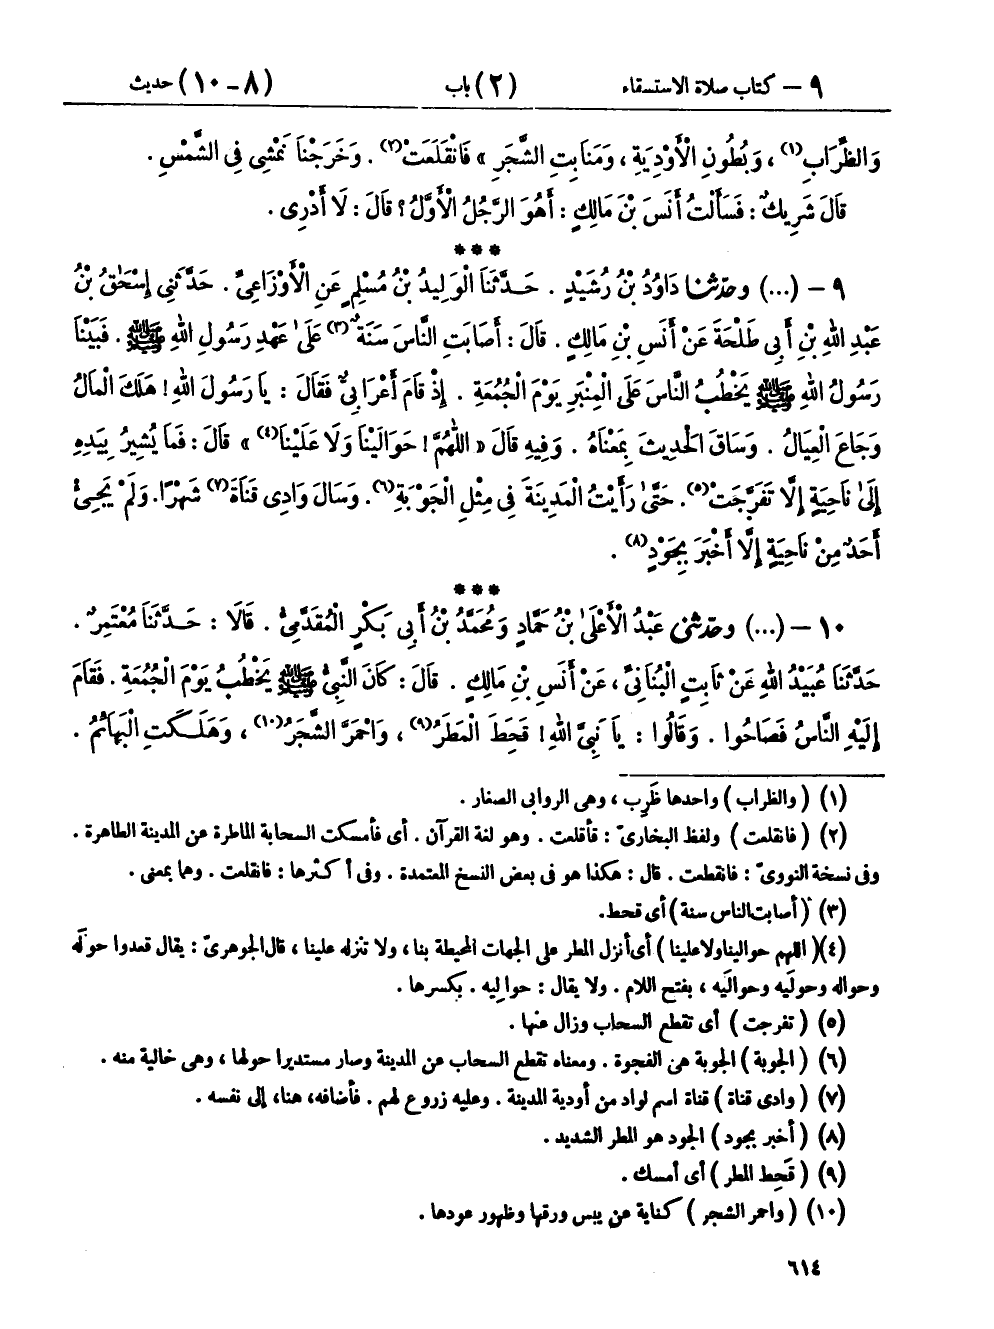 ٩ – كتاب صلاة الاستسقاء (٢) باب (٨-١٠) حديث
وَالظِّرَابِ(١) ، وَبُطُونِ الْأَوْدِيَةِ ، وَمَنَابِتِ الشَّجَرِ » فَانْقَلَعَتْ(٢) . وَخَرَجْنَا نَمْشِى فِى الشَّمْسِ .
قَالَ شَرِيكٌ : فَسَأَلْتُ أَنَسَ بْنَ مَالِكٍ : أَهُوَ الرَّجُلُ الْأَوَّلُ ؟ قَالَ : لَا أَدْرِى .
***
٩ – (...) وحَدَّثَنَا دَاوُدُ بْنُ رُشَيْدٍ . حَدَّثَنَا الْوَلِيدُ بْنُ مُسْلِمٍ عَنِ الْأَوْزَاعِىِّ . حَدَّثَنِى إِسْحَٰقُ بْنُ
عَبْدِ اللهِ بْنِ أَبِى طَلْحَةَ عَنْ أَنَسِ بْنِ مَالِكٍ . قَالَ : أَصَابَتِ النَّاسَ سَنَةٌ(٣) عَلَىٰ عَهْدِ رَسُولِ اللهِ ﷺ . فَبَيْنَا
رَسُولُ اللهِ ﷺ يَخْطُبُ النَّاسَ عَلَى الْمِنْبَرِ يَوْمَ الْجُمُعَةِ . إِذْ قَامَ أَعْرَابِىٌّ فَقَالَ : يَا رَسُولَ اللهِ ! هَلَكَ الْمَالُ
وَجَاعَ الْعِيَالُ . وَسَاقَ الْحَدِيثَ بِمَعْنَاهُ . وَفِيهِ قَالَ « اللّٰهُمَّ ! حَوَالَيْنَا وَلَا عَلَيْنَا(٤) » قَالَ : فَمَا يُشِيرُ بِيَدِهِ
إِلَىٰ نَاحِيَةٍ إِلَّا تَفَرَّجَتْ(٥) . حَتَّىٰ رَأَيْتُ الْمَدِينَةَ فِى مِثْلِ الْجَوْبَةِ(٦) . وَسَالَ وَادِى قَنَاةَ(٧) شَهْرًا . وَلَمْ يَجِئْ
أَحَدٌ مِنْ نَاحِيَةٍ إِلَّا أَخْبَرَ بِجَوْدٍ(٨) .
***
١٠ – (...) وحَدَّثَنِى عَبْدُ الْأَعْلَىٰ بْنُ حَمَّادٍ وَمُحَمَّدُ بْنُ أَبِى بَكْرٍ الْمُقَدَّمِىُّ . قَالَا : حَدَّثَنَا مُعْتَمِرٌ .
حَدَّثَنَا عُبَيْدُ اللهِ عَنْ ثَابِتٍ الْبُنَانِىِّ ، عَنْ أَنَسِ بْنِ مَالِكٍ . قَالَ : كَانَ النَّبِىُّ ﷺ يَخْطُبُ يَوْمَ الْجُمُعَةِ . فَقَامَ
إِلَيْهِ النَّاسُ فَصَاحُوا . وَقَالُوا : يَا نَبِىَّ اللهِ ! قَحَطَ الْمَطَرُ(٩) ، وَاحْمَرَّ الشَّجَرُ(١٠) ، وَهَلَكَتِ الْبَهَائِمُ .
(١) ( والظراب ) واحدها ظَرِب ، وهى الروابى الصغار .
(٢) ( فانقلعت ) ولفظ البخارىّ : فأقلعت . وهو لغة القرآن . أى فأمسكت السحابة الماطرة عن المدينة الطاهرة .
وفى نسخة النووىّ : فانقطعت . قال : هكذا هو فى بعض النسخ المعتمدة . وفى أكثرها : فانقلعت . وهما بمعنى .
(٣) ( أصابت الناس سنة ) أى قحط.
(٤) ( اللهم حوالينا ولا علينا ) أى أنزل المطر على الجهات المحيطة بنا ، ولا تنزله علينا ، قال الجوهرىّ : يقال قعدوا حولَه
وحوالَه وحولَيه وحوالَيه ، بفتح اللام . ولا يقال : حوالِيه . بكسرها .
(٥) ( تفرجت ) أى تقطع السحاب وزال عنها .
(٦) ( الجوبة ) الجوبة هى الفجوة . ومعناه تقطع السحاب عن المدينة وصار مستديرا حولها ، وهى خالية منه .
(٧) ( وادى قناة ) قناة اسم لواد من أودية المدينة . وعليه زروع لهم . فأضافه، هنا، إلى نفسه .
(٨) ( أخبر بجود ) الجود هو المطر الشديد .
(٩) ( قَحِط المطر ) أى أمسك .
(١٠) ( واحمر الشجر ) كناية عن يبس ورقها وظهور عودها .
٦١٤